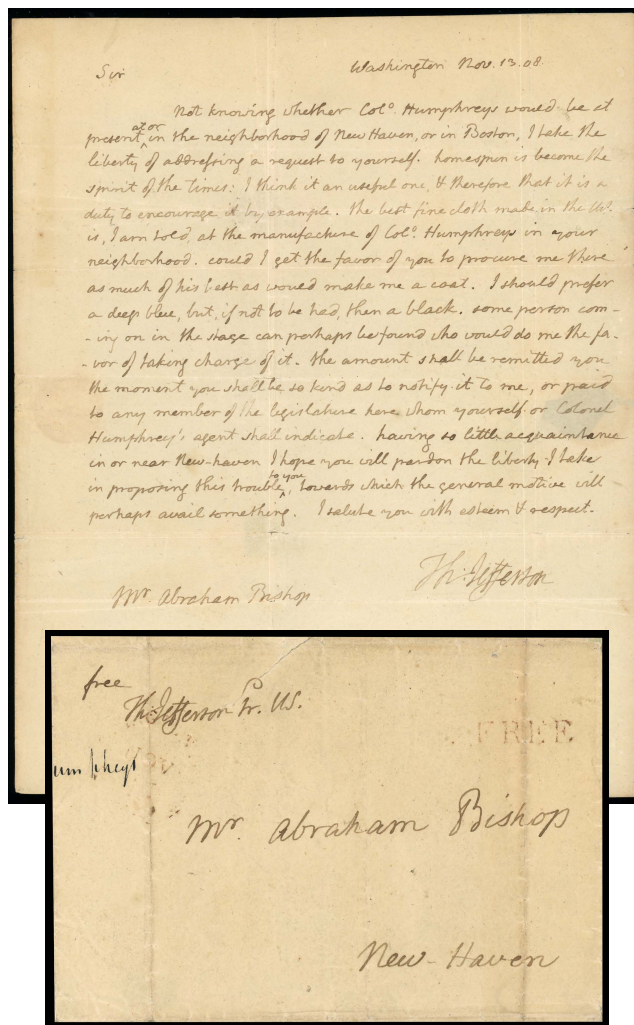 Washington Nov. 13. 08.
Sir
Not knowing whether Colo. Humphreys would be at
at or
present ^ in the neighborhood of New Haven, or in Boston, I take the
liberty of addressing a request to yourself. homespun is become the
spirit of the times: I think it an useful one, & therefore that it is a
duty to encourage it by example. the best fine cloth made in the US.
is, I am told, at the manufacture of Colo. Humphreys in your
neighborhood. could I get the favor of you to procure me there
as much of his best as would make me a coat. I should prefer
a deep blue, but, if not to be had, then a black. some person com-
-ing on in the stage can perhaps be found who would do me the fa-
-vor of taking charge of it. the amount shall be remitted you
the moment you shall be so kind as to notify it to me, or paid
to any member of the legislature here whom yourself or Colonel
Humphrey's agent shall indicate. having so little acquaintance
in or near New-haven I hope you will pardon the liberty I take
to you
in proposing this trouble ^, towards which the general motive will
perhaps avail something. I salute you with esteem & respect.
Th: Jefferson
Mr. Abraham Bishop
free
Th: Jefferson Pr. US.
FREE
umphreys
Mr. Abraham Bishop
New-Haven